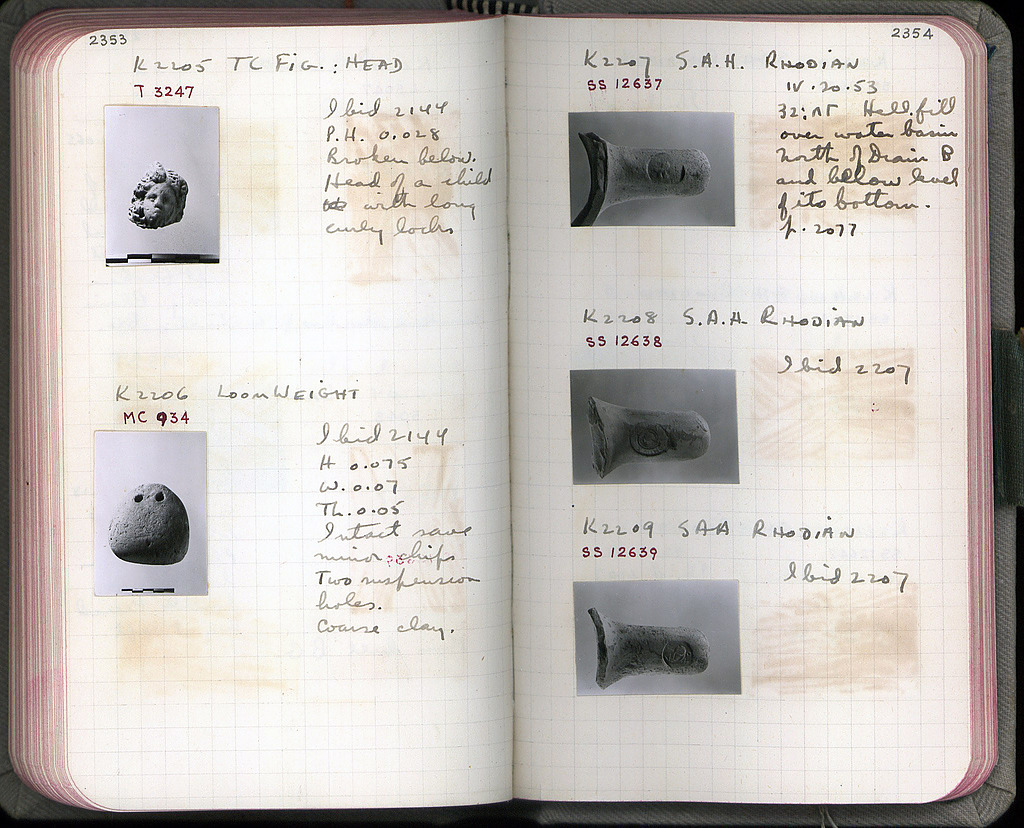 2353
K2205 TC Fig.: HEAD
T 3247
Ibid 2144
P.H. 0.028
Broken below.
Head of a child
with long
curly locks
K2206 LOOMWEIGHT
MC 934
Ibid 2144
H 0.075
W. 0.07
Th. 0.05
Intact save
minor chips
Two suspension
holes.
Coarse clay.
2354
K2207 S.A.H. RHODIAN
SS 12637
IV.20.53
32: Hell. fill
over water basin
north of Drain B
and below level
of its bottom.
p. 2077
K2208 S.A.H. RHODIAN
SS 12638
Ibid 2207
K2209 SAH RHODIAN
SS 12639
Ibid 2207